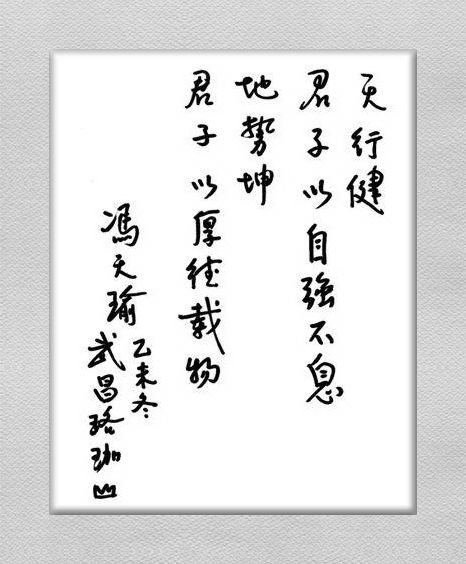 天行健
君子以自強不息
地势坤
君子以厚德载物
馮天瑜
乙未冬
武昌珞珈山